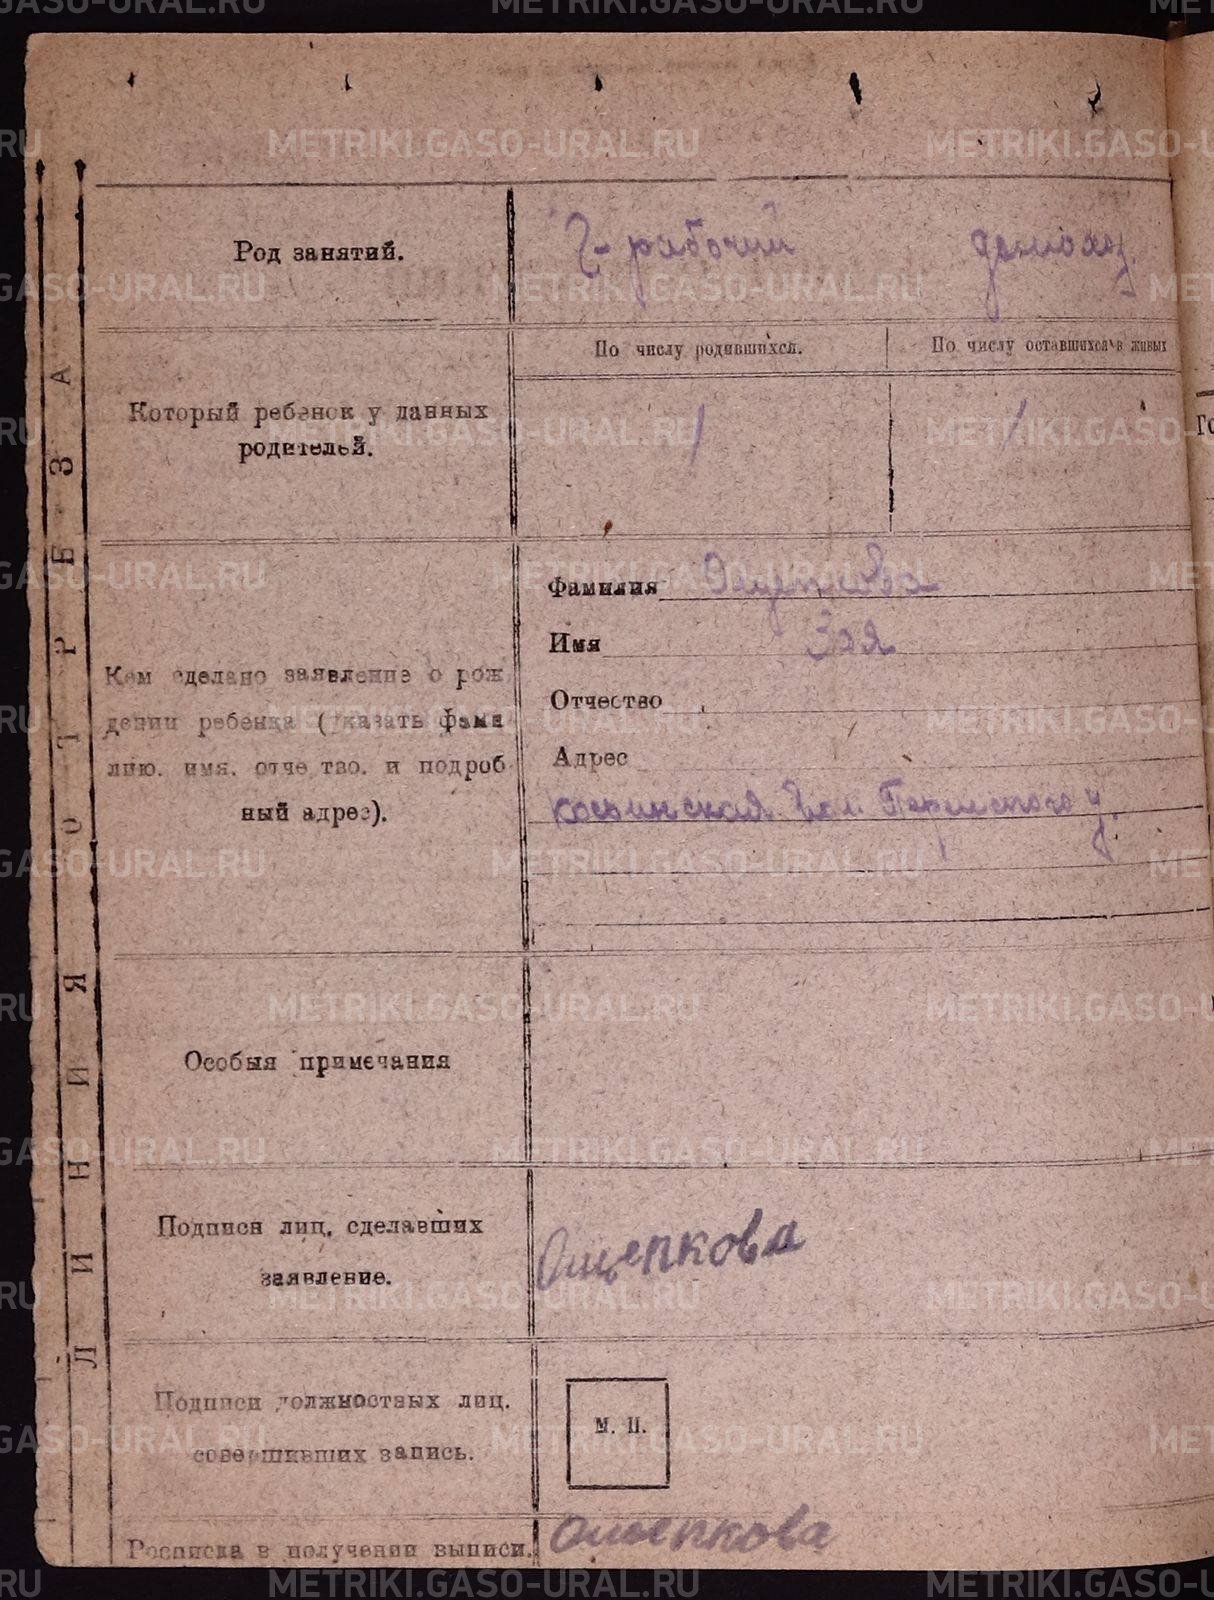 Род занятий.
рабочий
По числу родившихся.
По числу оставшихся в живых
Который ребенок у данных
родителей.
1
1
Фамилия Ощепкова
Имя Зоя
Отчество
Адрес
Кем сделано заявление о рож
дении ребенка (указать фами
лию. имя. отчество. и подроб
ный адрес).
Косьинская Вол. Пермского у.
Особыя примечания
Подписи лиц, сделавших
заявление.
Ощепкова
Подписи должностных лиц.
совершивших запись.
М. П.
Росписка в получении выписи.
Ощепкова
ЛИНИЯ ОТРЕЗА
METRIKI.GASO-URAL.RU